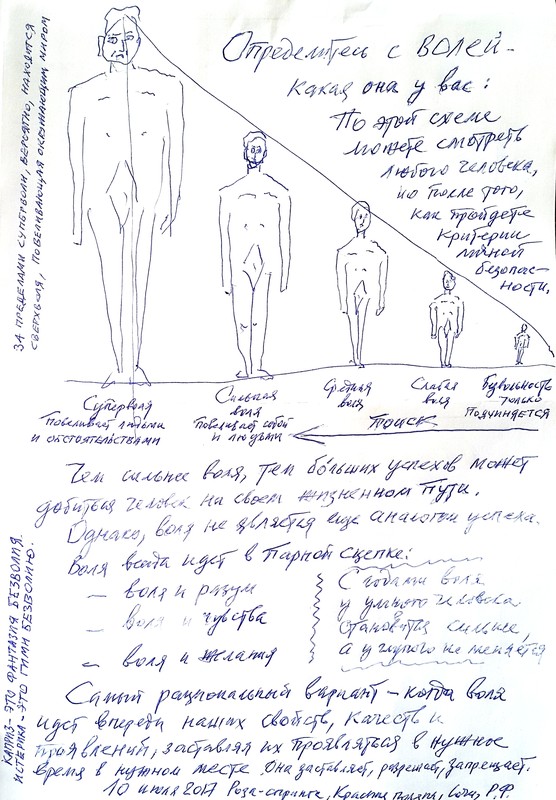 Определитесь с волей -
какая она у вас:
По этой схеме
можете смотреть
любого человека,
но после того,
как пройдете
критерии
личной
безопас-
ности.
ЗА ПРЕДЕЛАМИ СУПЕРВОЛИ, ВЕРОЯТНО, НАХОДИТСЯ
СВЕРХВОЛЯ, ПОВЕЛЕВАЮЩАЯ ОКРУЖАЮЩИМ МИРОМ
Суперволя
Повелевает людьми
и обстоятельствами
Сильная
воля
Повелевает собой
и людьми
Средняя
воля
Слабая
воля
Безвольность
только
подчиняется
Поиск
Чем сильнее воля, тем бо́льших успехов может
добиться человек на своем жизненном пути.
Однако, воля не является еще аналогом успеха.
Воля всегда идет в парной сцепке:
– воля и разум
– воля и чувства
– воля и желания
С годами воля
у умного человека
становится сильнее,
а у глупого не меняется
Самый рациональный вариант – когда воля
идет впереди наших свойств, качеств и
проявлений, заставляя их проявляться в нужное
время в нужном месте. Она заставляет, разрешает, запрещает.
10 июля 2017 Роза-спрингс, Красная поляна, Сочи, Р.Ф.
КАПРИЗ – ЭТО ФАНТАЗИЯ БЕЗВОЛИЯ.
ИСТЕРИКА – ЭТО ГИМН БЕЗВОЛИЮ.